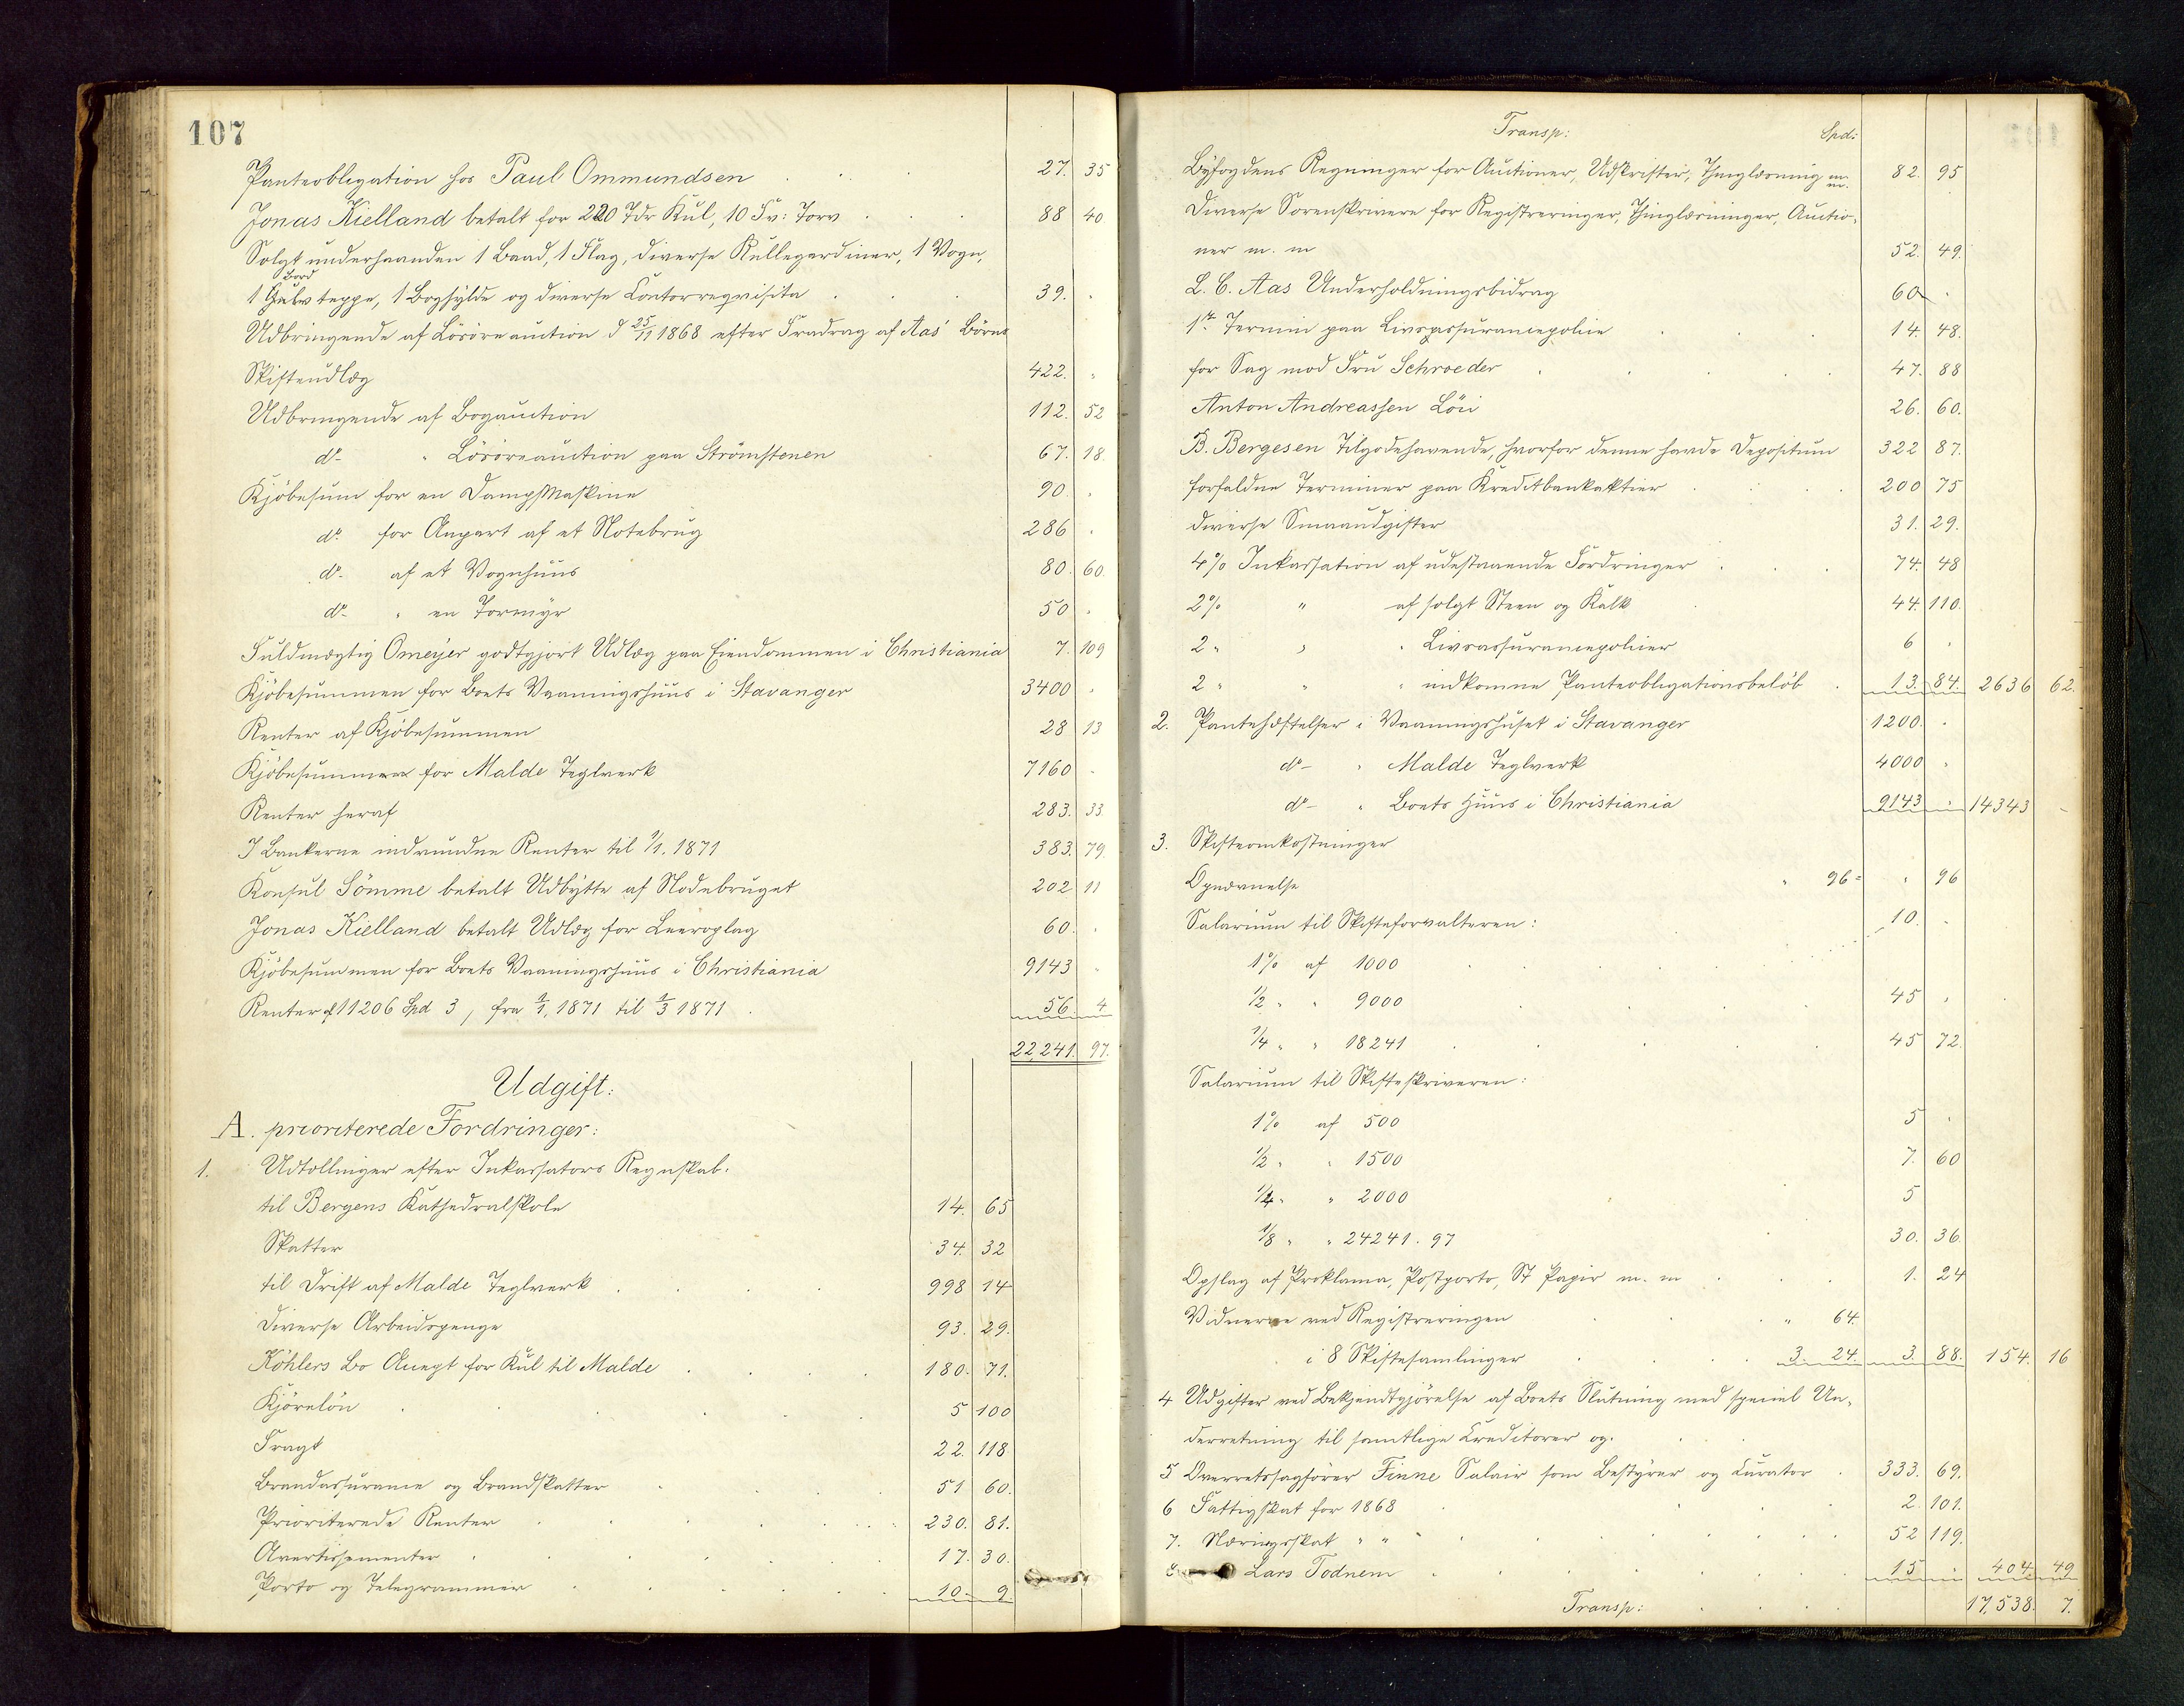 107
Panteobligation hos Paul Ommundsen 27. 35
Jonas Kielland betalt for 220 Tdr Kul, 10 Fv: Torv 88 40
Solgt underhaanden 1 Baad, 1 Flag, diverse Rullegardiner, 1 Vogn,
Bord
1 Gulvteppe, 1 Boghylde og diverse Contorreqvisita 39. "
Udbringende af Lösöreauction d 25/11 1868 efter Fradrag af Aas' Börns
Skifteudlæg 422. "
Udbringende af Bogauction 112. 52
do " Lösöreauction paa Strömstenen 67. 18
Kjöbesum for en Dampmaskine 90. "
do for Anpart af et Notebrug 286 "
do af et Vognhuus 80. 60.
do " en Tormyr 50 "
Fuldmægtig Omeyer godtgjort Udlæg paa Eiendommen i Christiania 7. 109
Kjöbesummen for Boets Vaaningshuus i Stavanger 3400 "
Renter af Kjöbesummen 28 13
Kjöbesummen for Malde Teglverk 7160 "
Renter heraf 283. 33
I Bankerne indvundne Renter til 1/1. 1871 383. 79.
Konsul Sömme betalt Udbytte af Nodebruget 202 11
Jonas Kielland betalt Udlæg for Leeroplag 60. "
Kjöbesummen for Boets Vaaningshuus i Christiania 9143 "
Renter af 11206 Spd 3, fra 1/1. 1871 til 1/3 1871 56. 4
22,241. 97.
Udgift:
A. prioriterede Fordringer:
1. Udtællinger efter Inkassators Regnskab.
til Bergens Kathedralskole 14. 65
Skatter 34. 32
til Drift af Malde Teglverk 998 14
Diverse Arbeidspenge 93. 29.
Köhlers Bo Auegt for Kul til Malde 180. 71.
Kjöreløn 5 100
Fragt 22. 118
Brandassurance og Brandskatter 51 60.
Prioriterede Renter 230. 81.
Avertissementer 17. 30.
Porto og Telegrammer 10. 9.
Transp: Spd:
Byfogdens Regninger for Auctioner, Udskrifter, Thinglæsning m. m. 82. 95
Diverse Sorenskrivere for Registreringer, Thinglæsninger, Auctio-
ner m. m 52. 49.
L. C. Aas Underholdningsbidrag 60 "
1ste Termin paa Livsassurancepolice 14. 48.
for Sag mod Fru Schroeder 47. 88
Anton Andreassen Löri 26. 60.
B. Bergesen Tilgodehavende, hvorfor denne havde Depositum 322 87.
forfaldne Terminer paa Kreditbankaktier 200 75
diverse Smaaudgifter 31. 29.
4% Inkassation af udestaaende Fordringer 74. 48
2% " af solgt Steen og Kalk 44. 110.
2 " " " Livsassurancepolicer 6 "
2 " " " indkomne Panteobligationsbeløb 13. 84. 2636 62.
2. Pantehæftelser i Vaaningshuset i Stavanger 1200. "
do " Malde Teglverk 4000 "
do " Boets Huus i Christiania 9143 " 14343 "
3. Skifteomkostninger
Opnævnelse " 96 = " 96
Salarium til Skifteforvalteren: 10. "
1% af 1000
1/2 " " 9000 45 "
1/4 " " 18241 45 72.
Salarium til Skifteskriveren:
1% af 500 5 "
1/2 " " 1500 7. 60
1/4 " " 2000 5
1/8 " " 24241. 97 30. 36.
Opslag af Proklama, Postporto, St Papir m. m 1. 24
Vidnerne ved Registreringen " 64.
i 8 Skiftesamlinger 3. 24. 3. 88. 154. 16
4 Udgifter ved Bekjendtgjörelse af Boets Slutning med speciel Un-
derretning til samtlige Creditorer og.
5 Overretssagförer Finne Salair som Bestyrer og Curator 333. 69.
6 Fattigskat for 1868 2. 101.
7. Næringsskat " " 52 119.
Lars Todnem 15 " 404. 49
Transp: 17,538. 7.